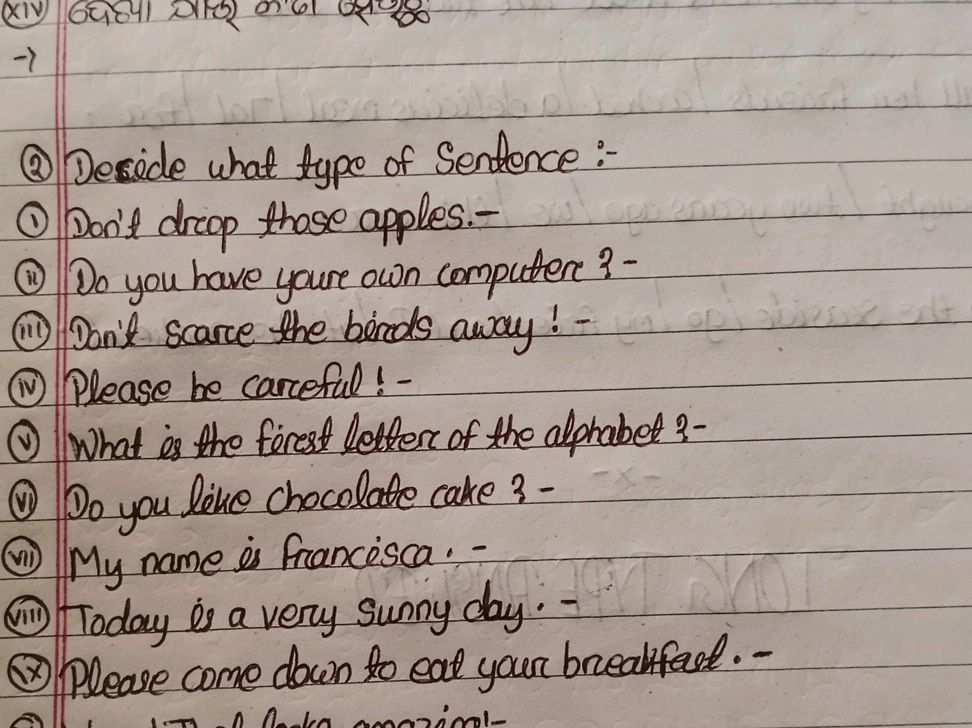 (xiv)
→
② Decide what type of Sentence :-
(i) Don't drop those apples.-
(ii) Do you have your own computer ? -
(iii) Don't scare the birds away ! -
(iv) Please be careful ! -
(v) What is the first letter of the alphabet ? -
(vi) Do you like chocolate cake ? -
(vii) My name is francisca . -
(viii) Today is a very sunny day . -
(ix) Please come down to eat your breakfast . -
looks amazing!-